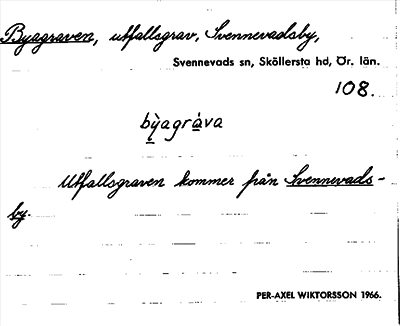 Byagraven, utfallsgrav, Svennevadsby,
Svennevads sn, Sköllersta hd, Ör. län.
108.
bỳ̖agrå̖̀va
Utfallsgraven kommer från Svennevads-
by.
PER-AXEL WIKTORSSON 1966.